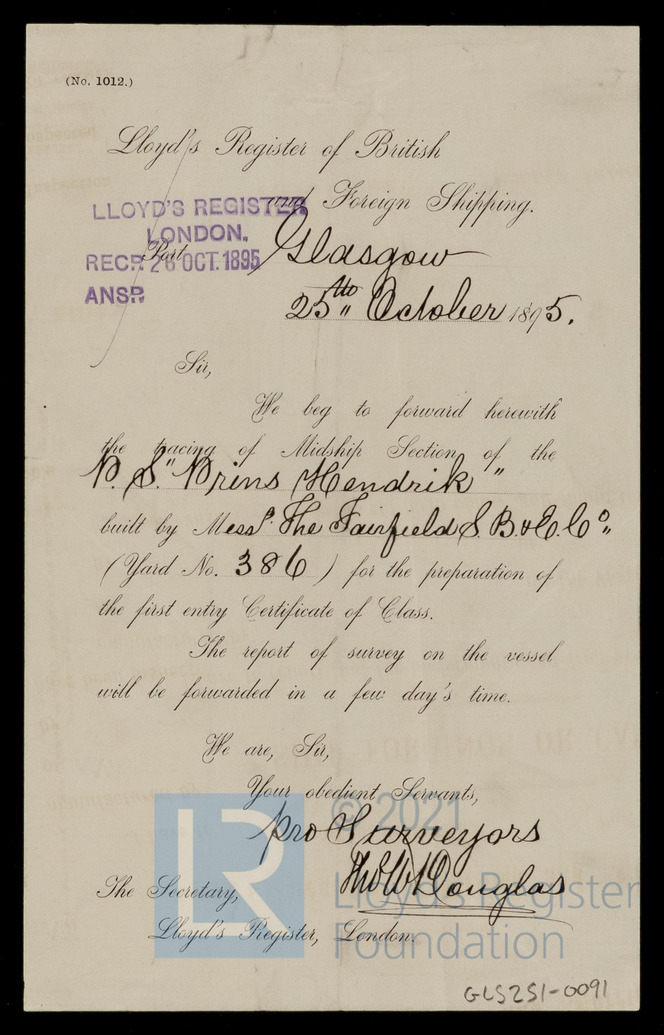 (No. 1012.)
Lloyd's Register of British
and Foreign Shipping.
LLOYD'S REGISTER
LONDON.
RECP. 26 OCT. 1895
ANSR
Port Glasgow
25th October 1895.
Sir,
We beg to forward herewith
the tracing of Midship Section of the
P. S. "Prins Hendrik"
built by Messrs. The Fairfield S. B. & E. Co.
(Yard No. 386) for the preparation of
the first entry Certificate of Class.
The report of survey on the vessel
will be forwarded in a few day's time.
We are, Sir,
Your obedient Servants,
pro Surveyors
Thos W Douglas
The Secretary,
Lloyd's Register, London.
© 2021
LR
Lloyd's Register
Foundation
GLS251-0091